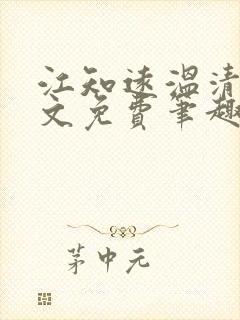 江知远温清
文免费笔趣
茅中元